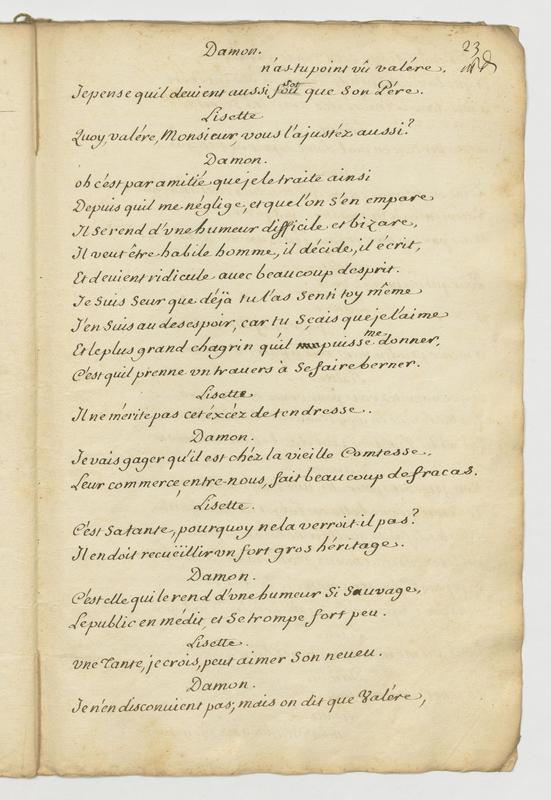 23
Damon.
n'as-tu point vû valére.
Je pense qu'il devient aussi sot que son Pére.
Lisette
Quoy, valére, Monsieur, vous l'ajustéz aussi?
Damon.
oh c'est par amitié que je le traite ainsi
Depuis qu'il me néglige, et que l'on s'en empare
Il se rend d'vne humeur difficile et bizare,
Il veut être habile homme, il décide, il écrit,
Et devient ridicule avec beaucoup d'esprit.
Je suis seur que déja tu l'as senti toy même
J'en suis au desespoir, car tu sçais que je l'aime
Et le plus grand chagrin qu'il puisse me donner,
C'est qu'il prenne vn travers à se faire berner.
Lisette
Il ne mérite pas cet éxcéz de tendresse.
Damon.
Je vais gager qu'il est chéz la vieille Comtesse.
Leur commerce, entre-nous, fait beaucoup de fracas.
Lisette.
C'est sa tante, pourquoy ne la verroit-il pas?
Il en doit recuëillir vn fort gros héritage.
Damon.
C'est elle qui le rend d'vne humeur si sauvage,
Le public en médit, et se trompe fort peu.
Lisette.
vne Tante, je crois, peut aimer son neveu.
Damon.
Je n'en disconvient pas; mais on dit que Valére,